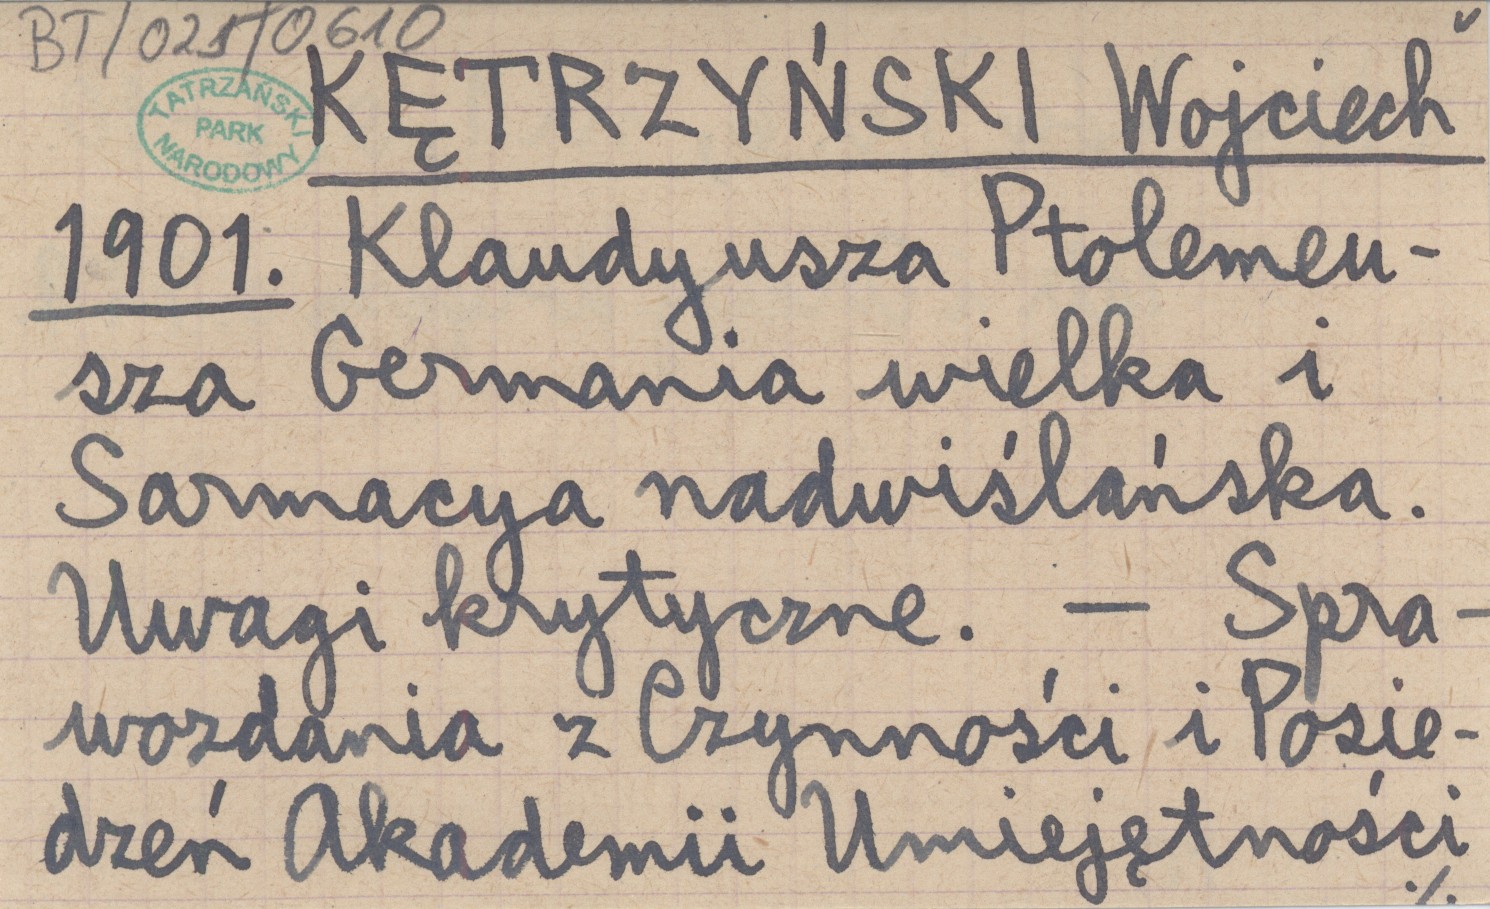 BT/021/0610
TATRZAŃSKI PARK NARODOWY
KĘTRZYŃSKI Wojciech
1901. Klaudyusza Ptolemeu-
sza Germania wielka i
Sarmacya nadwiślańska.
Uwagi krytyczne. — Spra-
wozdania z Czynności i Posie-
dzeń Akademii Umiejętności
./.